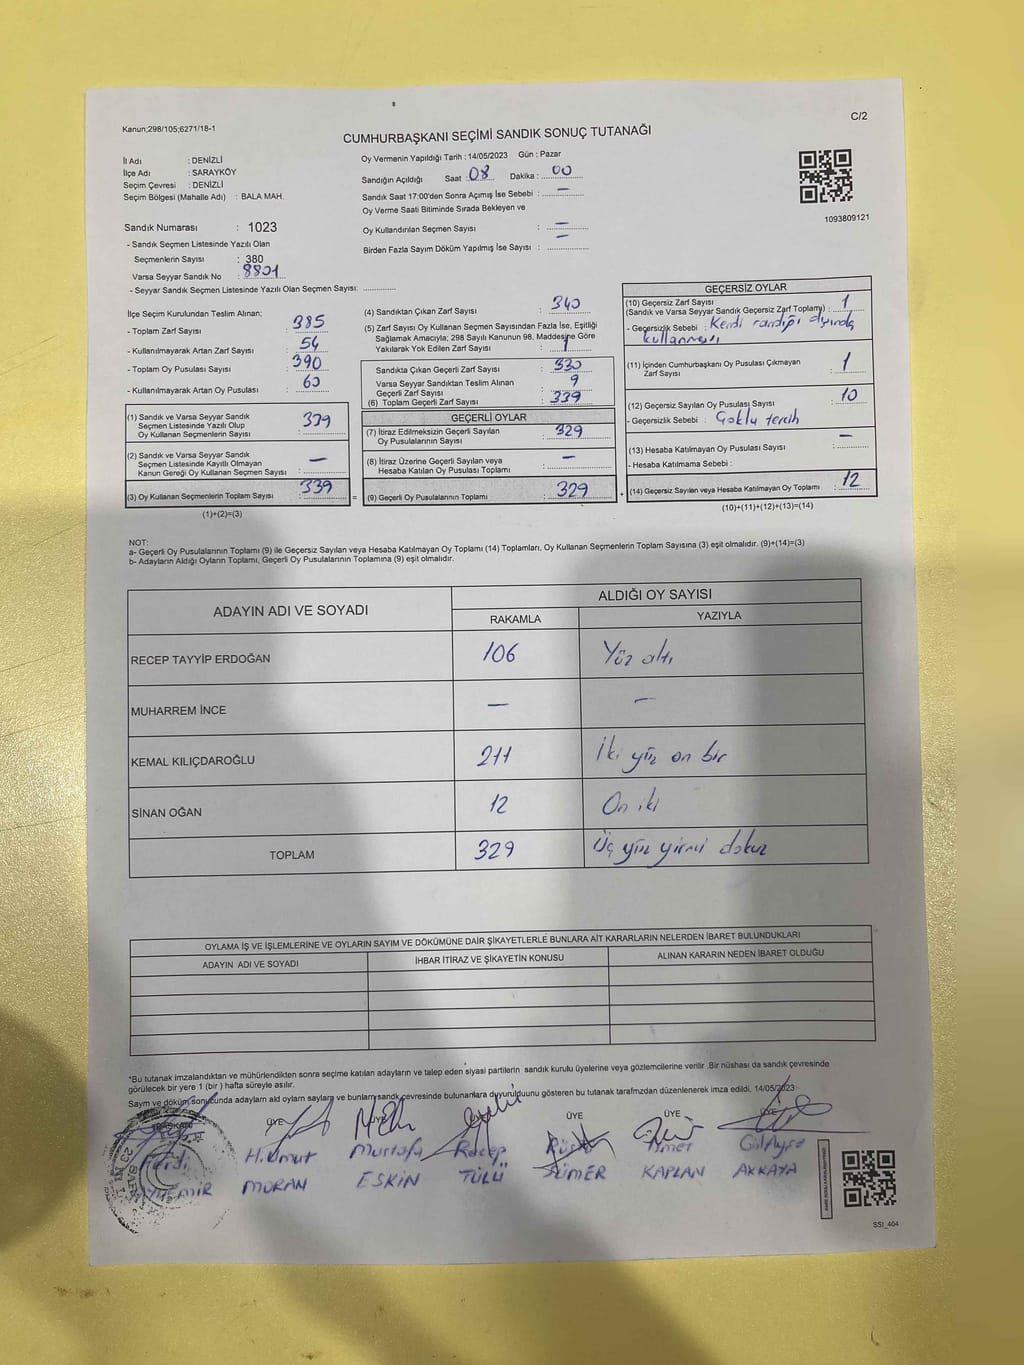 Kanun;298/105;6271/18-1
C/2
CUMHURBAŞKANI SEÇİMİ SANDIK SONUÇ TUTANAĞI
İl Adı : DENİZLİ
İlçe Adı : SARAYKÖY
Seçim Çevresi : DENİZLİ
Seçim Bölgesi (Mahalle Adı) : BALA MAH.
Oy Vermenin Yapıldığı Tarih : 14/05/2023 Gün : Pazar
Sandığın Açıldığı Saat : 08 Dakika : 00
Sandık Saat 17:00'den Sonra Açımış İse Sebebi : –
Oy Verme Saati Bitiminde Sırada Bekleyen ve
Oy Kullandırılan Seçmen Sayısı : –
Birden Fazla Sayım Döküm Yapılmış İse Sayısı : –
1093809121
Sandık Numarası : 1023
- Sandık Seçmen Listesinde Yazılı Olan
Seçmenlerin Sayısı : 380
Varsa Seyyar Sandık No : 8801
- Seyyar Sandık Seçmen Listesinde Yazılı Olan Seçmen Sayısı:
İlçe Seçim Kurulundan Teslim Alınan;
- Toplam Zarf Sayısı : 385
- Kullanılmayarak Artan Zarf Sayısı : 54
- Toplam Oy Pusulası Sayısı : 390
- Kullanılmayarak Artan Oy Pusulası : 60
(1) Sandık ve Varsa Seyyar Sandık
Seçmen Listesinde Yazılı Olup
Oy Kullanan Seçmenlerin Sayısı : 339
(2) Sandık ve Varsa Seyyar Sandık
Seçmen Listesinde Kayıtlı Olmayan
Kanun Gereği Oy Kullanan Seçmen Sayısı : –
(3) Oy Kullanan Seçmenlerin Toplam Sayısı : 339
(1)+(2)=(3)
(4) Sandıktan Çıkan Zarf Sayısı : 340
(5) Zarf Sayısı Oy Kullanan Seçmen Sayısından Fazla İse, Eşitliği
Sağlamak Amacıyla; 298 Sayılı Kanunun 98. Maddesine Göre
Yakılarak Yok Edilen Zarf Sayısı : 1
Sandıkta Çıkan Geçerli Zarf Sayısı : 330
Varsa Seyyar Sandıktan Teslim Alınan
Geçerli Zarf Sayısı : 9
(6) Toplam Geçerli Zarf Sayısı : 339
GEÇERLİ OYLAR
(7) İtiraz Edilmeksizin Geçerli Sayılan
Oy Pusulalarının Sayısı : 329
(8) İtiraz Üzerine Geçerli Sayılan veya
Hesaba Katılan Oy Pusulası Toplamı : –
= (9) Geçerli Oy Pusulalarının Toplamı : 329 +
GEÇERSİZ OYLAR
(10) Geçersiz Zarf Sayısı
(Sandık ve Varsa Seyyar Sandık Geçersiz Zarf Toplamı) : 1
- Geçersizlik Sebebi : Kendi sandığı dışında
kullanması
(11) İçinden Cumhurbaşkanı Oy Pusulası Çıkmayan
Zarf Sayısı : 1
(12) Geçersiz Sayılan Oy Pusulası Sayısı : 10
- Geçersizlik Sebebi : Çoklu tercih
(13) Hesaba Katılmayan Oy Pusulası Sayısı : –
- Hesaba Katılmama Sebebi :
(14) Geçersiz Sayılan veya Hesaba Katılmayan Oy Toplamı : 12
(10)+(11)+(12)+(13)=(14)
NOT:
a- Geçerli Oy Pusulalarının Toplamı (9) ile Geçersiz Sayılan veya Hesaba Katılmayan Oy Toplamı (14) Toplamları, Oy Kullanan Seçmenlerin Toplam Sayısına (3) eşit olmalıdır. (9)+(14)=(3)
b- Adayların Aldığı Oyların Toplamı, Geçerli Oy Pusulalarının Toplamına (9) eşit olmalıdır.
ADAYIN ADI VE SOYADI ALDIĞI OY SAYISI
RAKAMLA YAZIYLA
RECEP TAYYİP ERDOĞAN 106 Yüz altı
MUHARREM İNCE – –
KEMAL KILIÇDAROĞLU 211 İki yüz on bir
SİNAN OĞAN 12 On iki
TOPLAM 329 Üç yüz yirmi dokuz
OYLAMA İŞ VE İŞLEMLERİNE VE OYLARIN SAYIM VE DÖKÜMÜNE DAİR ŞİKAYETLERLE BUNLARA AİT KARARLARIN NELERDEN İBARET BULUNDUKLARI
ADAYIN ADI VE SOYADI İHBAR İTİRAZ VE ŞİKAYETİN KONUSU ALINAN KARARIN NEDEN İBARET OLDUĞU
*Bu tutanak imzalandıktan ve mühürlendikten sonra seçime katılan adayların ve talep eden siyasi partilerin sandık kurulu üyelerine veya gözlemcilerine verilir .Bir nüshası da sandık çevresinde
görülecek bir yere 1 (bir ) hafta süreyle asılır.
Sayım ve döküm sonucunda adayların ald oyların sayları ve bunların sandık çevresinde bulunanlara duyurulduunu gösteren bu tutanak tarafmzdan düzenlenerek imza edildi, 14/05/2023
BAŞKAN ÜYE ÜYE ÜYE ÜYE
H.Umut Mustafa Recep Ahmet GülAyşe
MORAN ESKİN TÜLÜ SÜMER KAPLAN AKKAYA
SSI_404